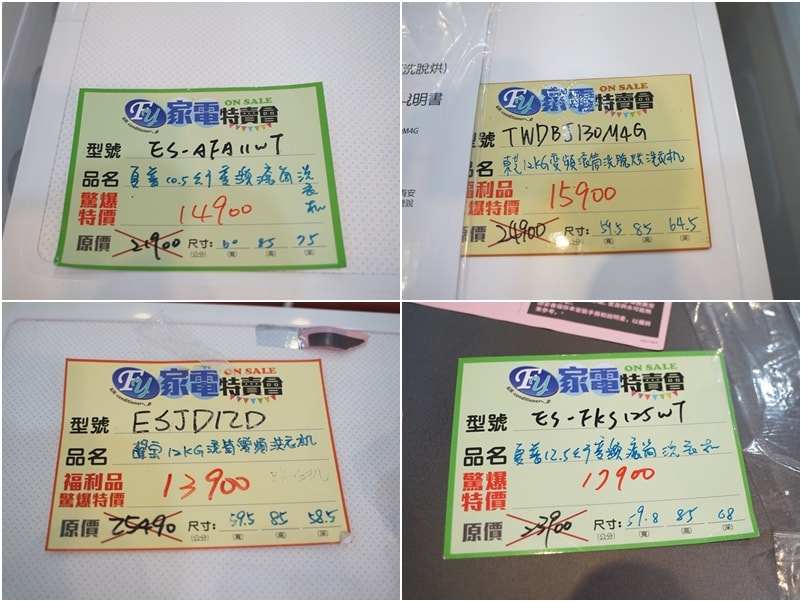 FU 家電特賣會 ON SALE
air conditioner
型號 ES-AFA11WT
品名 夏普10.5公斤變頻滾筒洗衣机
驚爆特價 14900
原價 21900 尺寸: 60 85 75
(公分) (寬) (高) (深)
洗脫烘)
明書
M4G
FU 家電特賣會 ON SALE
型號 TWDBJ130M4G
品名 東芝12KG変頻滾筒洗脫烘洗衣机
福利品
驚爆特價 15900
原價 24900 尺寸: 59.5 85 64.5
(公分) (寬) (高) (深)
FU 家電特賣會 ON SALE
air conditioner
型號 ESJD12D
品名 聲寶12KG滾筒變頻洗衣机
福利品
驚爆特價 13900
原價 25490 尺寸: 59.5 85 58.5
(公分) (寬) (高) (深)
FU 家電特賣會 ON SALE
air conditioner
型號 ES-FKS125WT
品名 夏普12.5公斤變頻滾筒洗衣机
驚爆特價 17900
原價 23900 尺寸: 59.8 85 68
(公分) (寬) (高) (深)